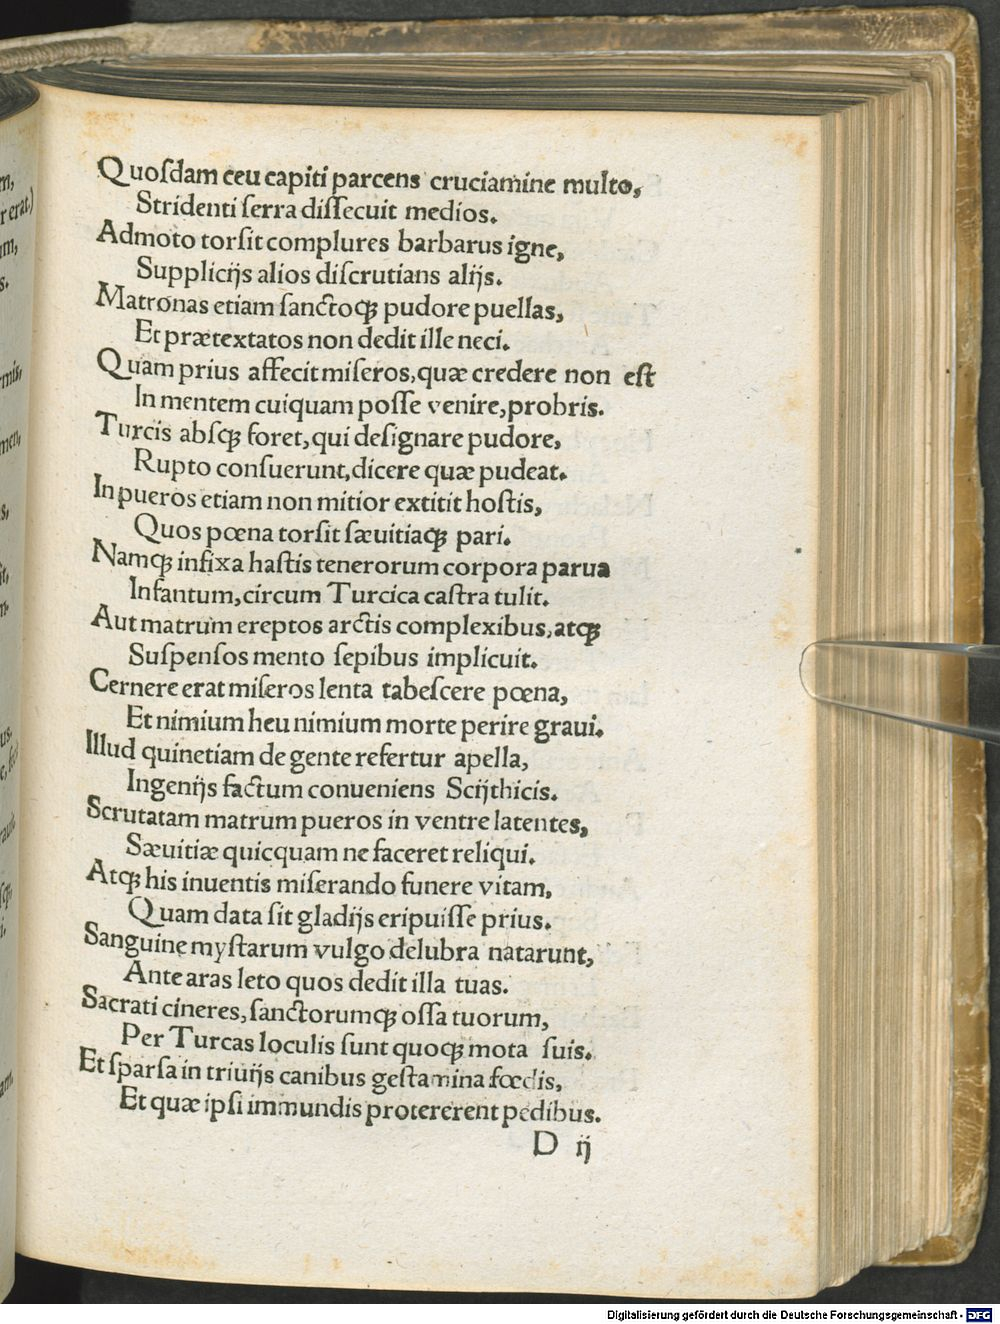 Quoſdam ceu capiti parcens cruciamine multo,
Stridenti ſerra diſſecuit medios.
Admoto torſit complures barbarus igne,
Supplicijs alios diſcrutians alijs.
Matronas etiam ſanctoqꝫ pudore puellas,
Et prætextatos non dedit ille neci.
Quam prius affecit miſeros, quæ credere non eſt
In mentem cuiquam poſſe venire, probris.
Turcis abſqꝫ foret, qui deſignare pudore,
Rupto conſuerunt, dicere quæ pudeat.
In pueros etiam non mitior extitit hoſtis,
Quos pœna torſit ſæuitiaqꝫ pari.
Namqꝫ infixa haſtis tenerorum corpora parua
Infantum, circum Turcica caſtra tulit.
Aut matrum ereptos arctis complexibus, atqꝫ
Suſpenſos mento ſepibus implicuit.
Cernere erat miſeros lenta tabeſcere pœna,
Et nimium heu nimium morte perire graui.
Illud quinetiam de gente refertur apella,
Ingenijs factum conueniens Scijthicis.
Scrutatam matrum pueros in ventre latentes,
Sæuitiæ quicquam ne faceret reliqui.
Atqꝫ his inuentis miſerando funere vitam,
Quam data ſit gladijs eripuiſſe prius.
Sanguine myſtarum vulgo delubra natarunt,
Ante aras leto quos dedit illa tuas.
Sacrati cineres, ſanctorumqꝫ oſſa tuorum,
Per Turcas loculis ſunt quoqꝫ mota ſuis.
Et ſparſa in triuijs canibus geſtamina fœdis,
Et quæ ipſi immundis protererent pedibus.
D ij
Digitalisierung gefördert durch die Deutsche Forschungsgemeinschaft - DFG